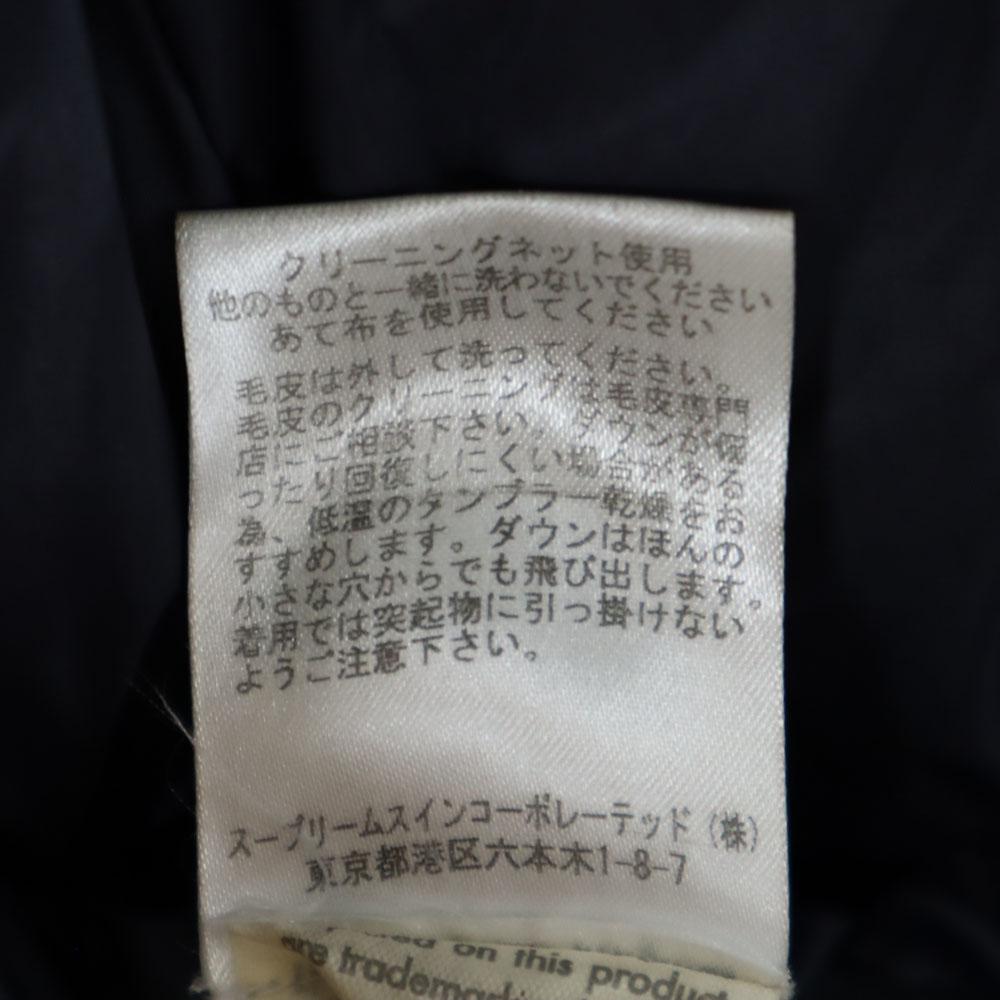 クリーニングネット使用
他のものと一緒に洗わないでください
あて布を使用してください
毛皮は外して洗ってください。
毛皮のクリーニングは毛皮専門
店にご相談下さい。ダウンが偏
った り回復しにくい場合がある
為、低温のタンブラー乾燥をお
すすめします。ダウンはほんの
小さな穴からでも飛び出します。
着用では突起物に引っ掛けない
ようご注意下さい。
スープリームスインコーポレーテッド(株)
東京都港区六本木1-8-7
on this product
are trademark